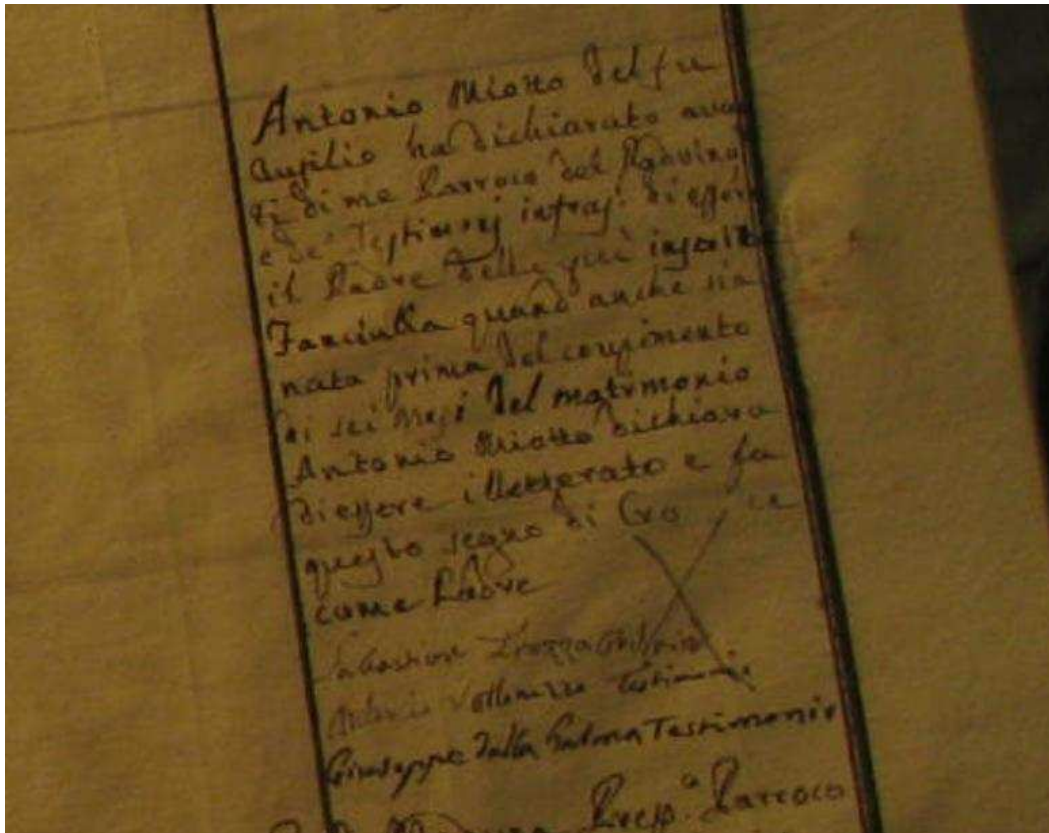 Antonio Miotto del fu
ha dichiarato avan
ti di me Parroco del
e de' Testimonj infras: di essere
il Padre della quì inscritta
Fanciulla quand' anche sia
nata prima del compimento
di sei mesi del matrimonio
Antonio Miotto dichiara
di essere illetterato e fa
questo segno di Cro ce
come Padre
Testimonio
Giuseppe Dalla Palma Testimonio
Parroco